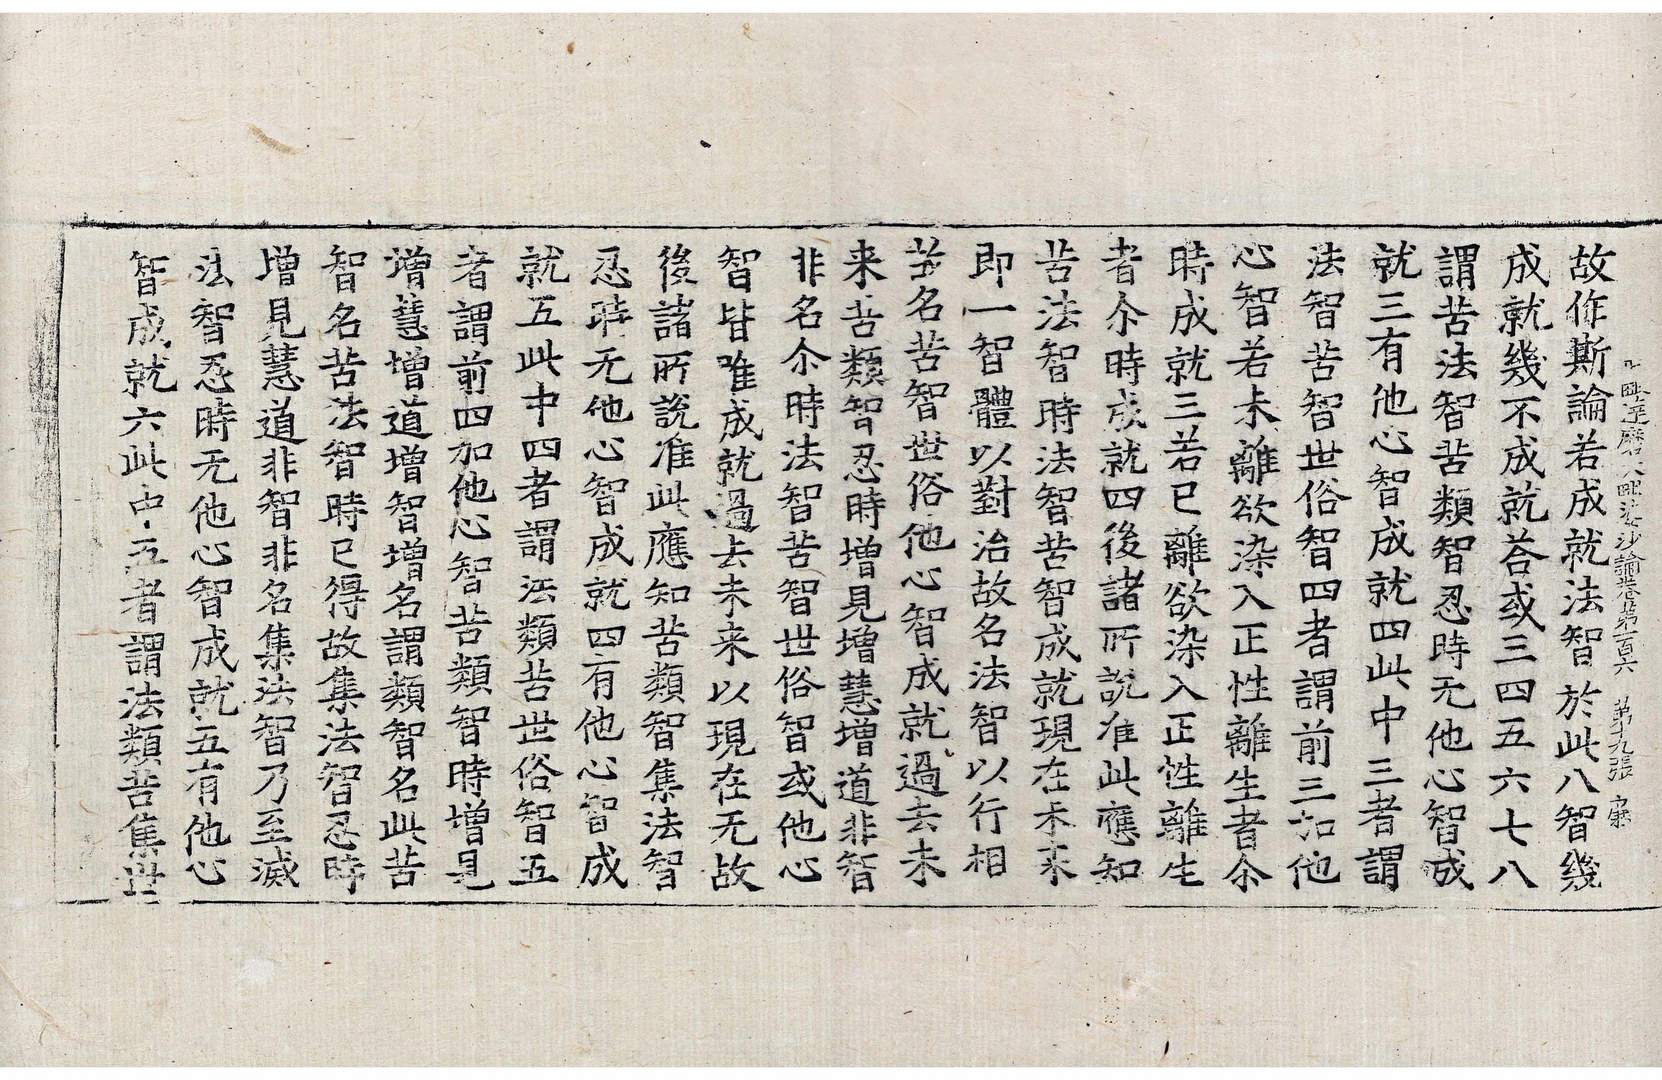 阿毗達磨大毗婆沙論卷第一百六 第十九張 𡩋
故作斯論若成就法智於此八智幾
成就幾不成就荅或三四五六七八
謂苦法智苦類智忍時无他心智成
就三有他心智成就四此中三者謂
法智苦智世俗智四者謂前三加他
心智若未離欲染入正性離生者尒
時成就三若已離欲染入正性離生
者尒時成就四後諸所說准此應知
苦法智時法智苦智成就現在未来
即一智體以對治故名法智以行相
苦名苦智世俗他心智成就過去未
来苦類智忍時增見增慧增道非智
非名尒時法智苦智世俗智或他心
智皆唯成就過去未来以現在无故
後諸所說准此應知苦類智集法智
忍時无他心智成就四有他心智成
就五此中四者謂法類苦世俗智五
者謂前四加他心智苦類智時增見
增慧增道增智增名謂類智名此苦
智名苦法智時已得故集法智忍時
增見慧道非智非名集法智乃至滅
法智忍時无他心智成就五有他心
智成就六此中五者謂法類苦集世